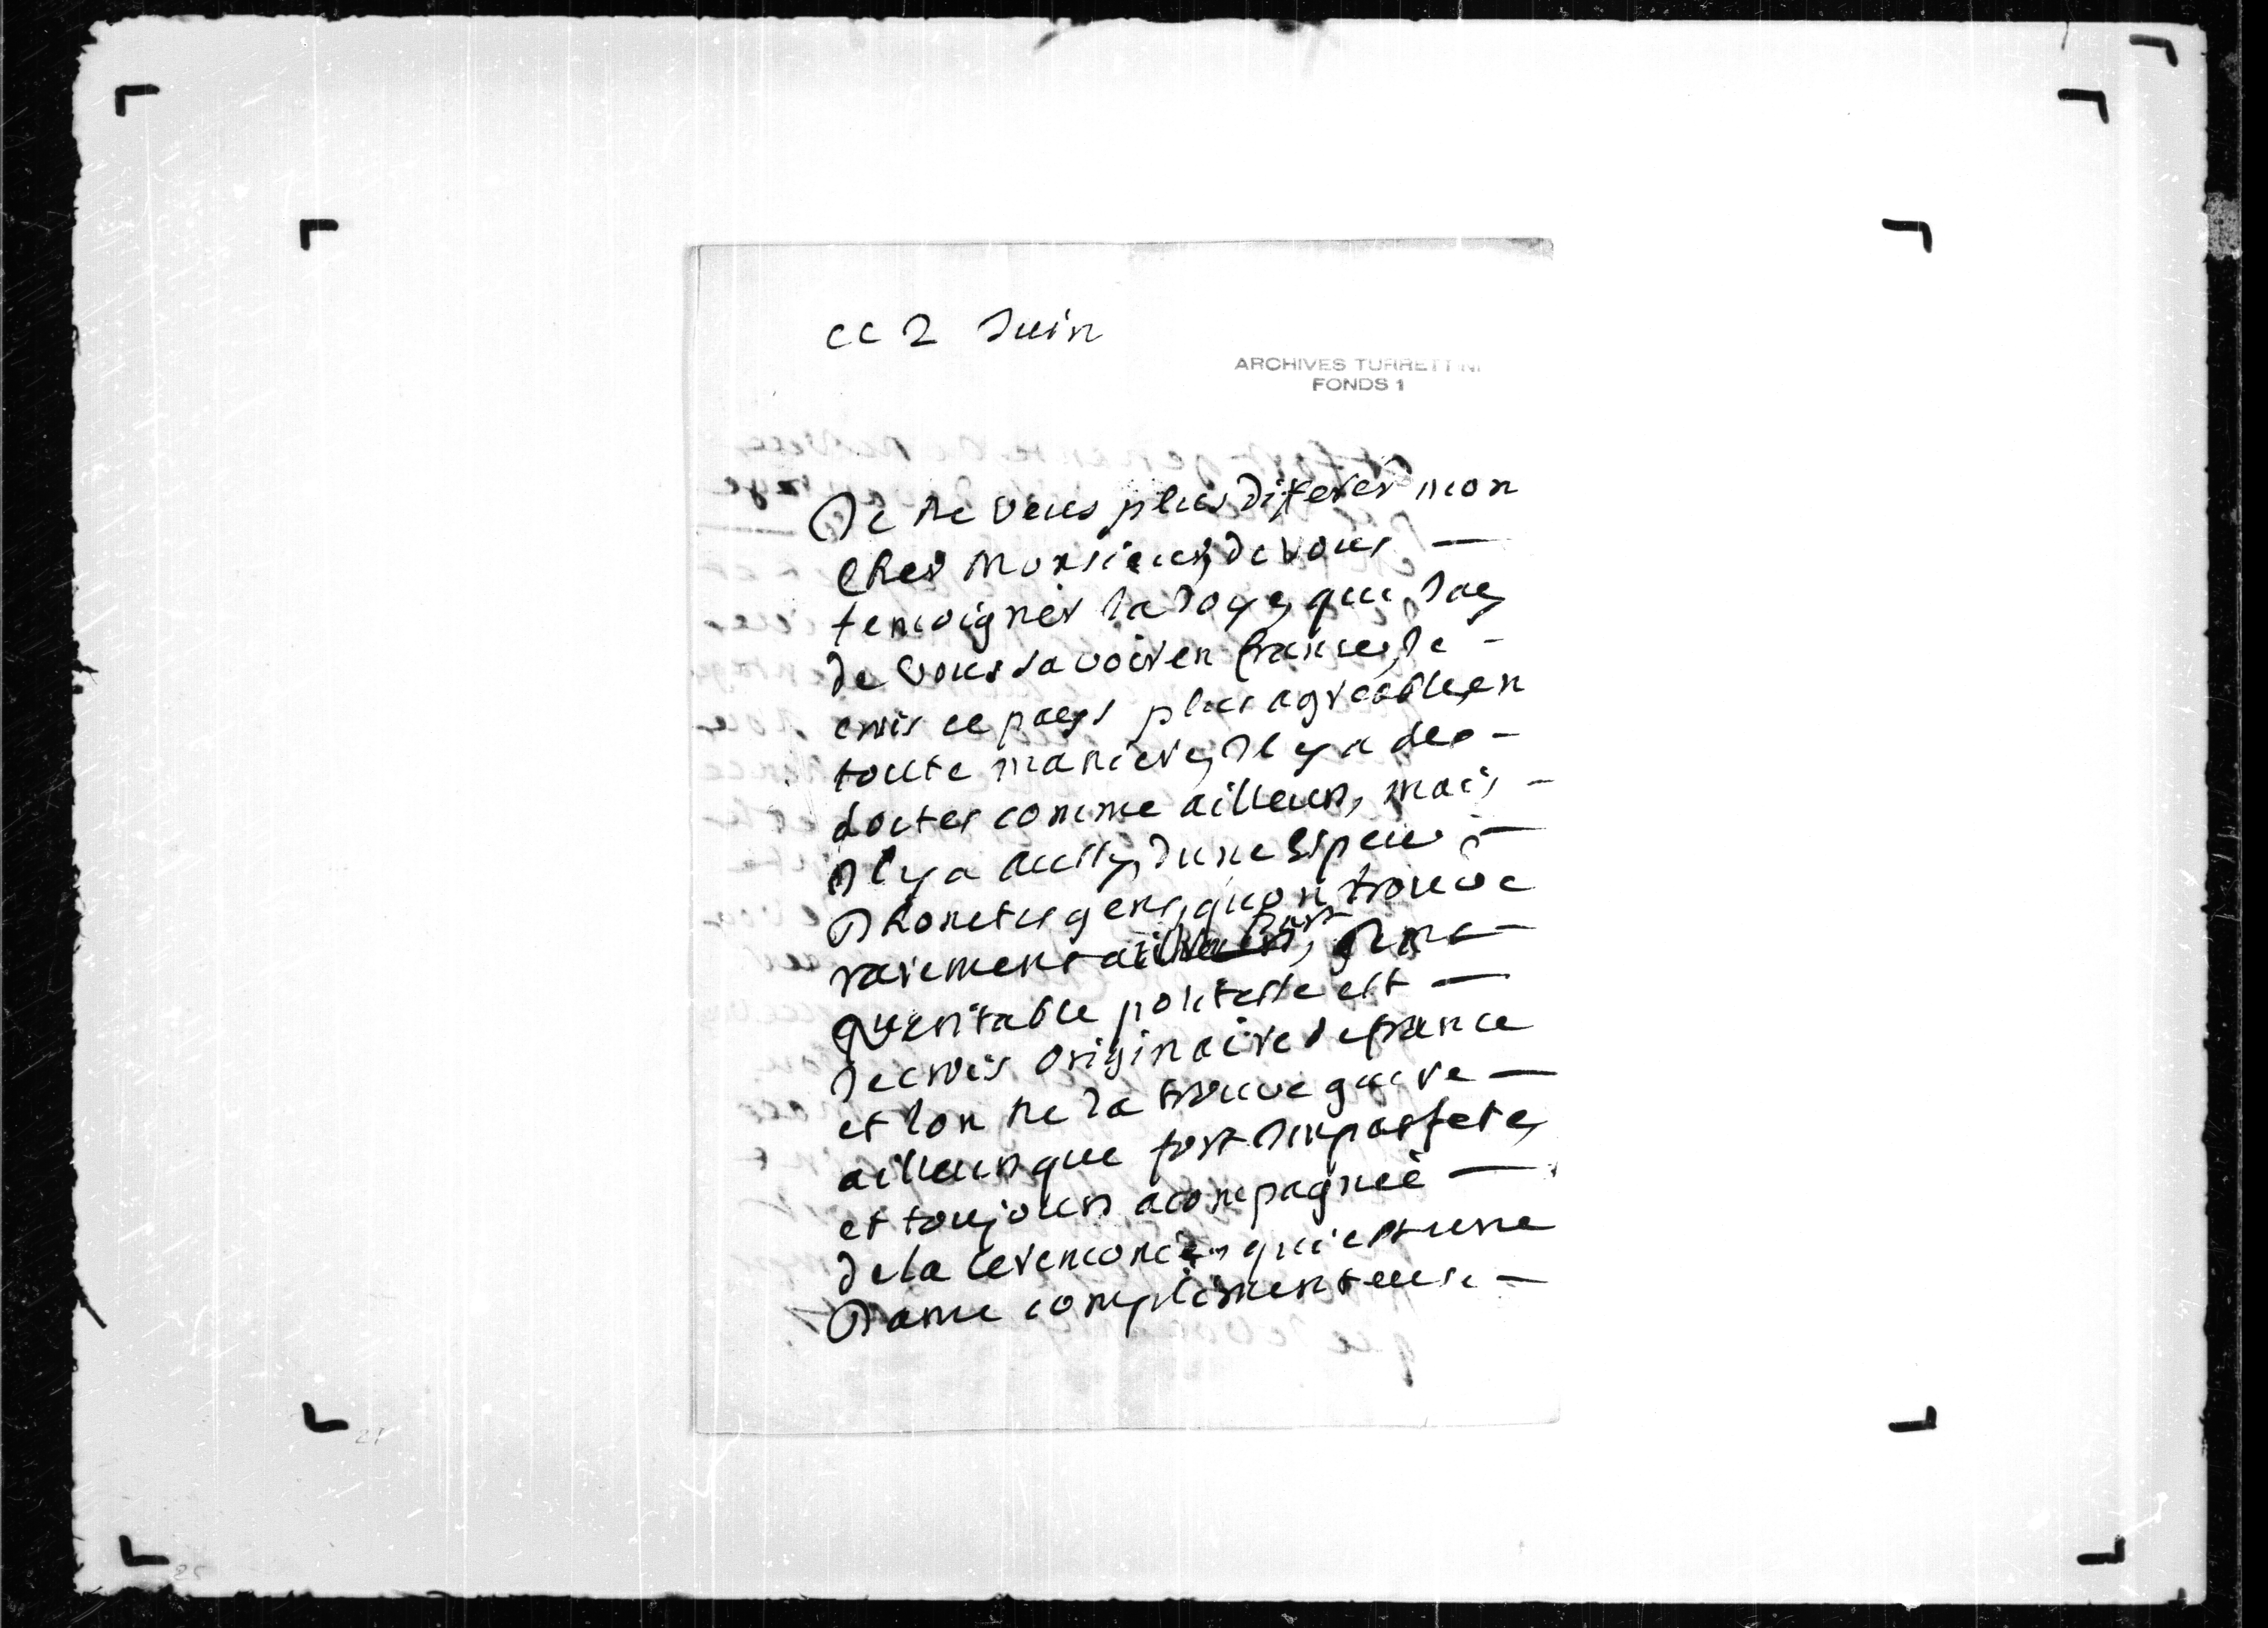 ce 2 Juin
ARCHIVES TURRETTINI
FONDS 1
Je ne veus plus diferer mon
cher Monsieur, de vous —
temoigner la Joye, que Jay
de vous savoir en france, Je -
crois ce pays plus agreable, en
toute maniere, Il y a des -
sortes comme ailleurs, mais -
Il y a aussy, dune Espece —
Dhonetes gens, quon trouve
rarement part, —
veritable politesse est —
Je crois Originaire de france
et lon ne la trouve guere —
ailleurs que fort Imparfete,
et toujours acompagneé —
de la ceremonie, qui est une
Dame complimenteuse —